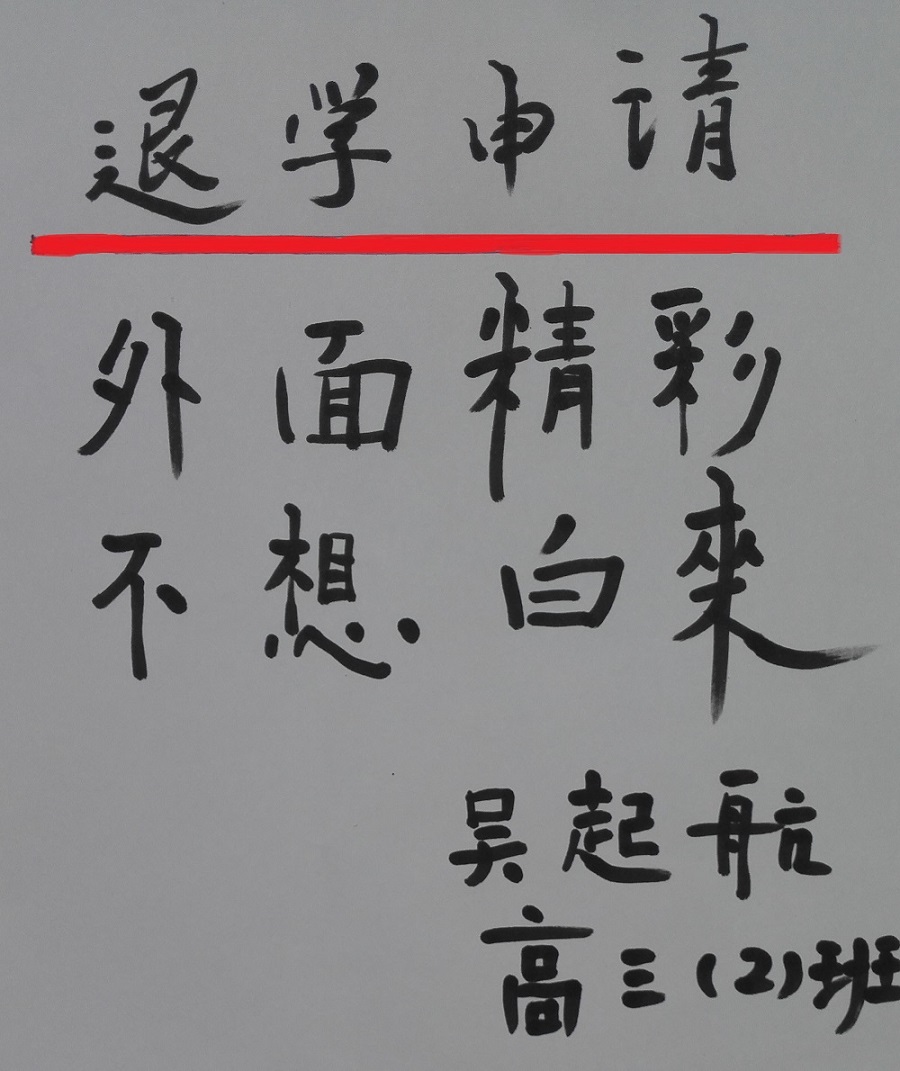 退学申请
外面精彩
不想白來
吴起航
高三(2)班